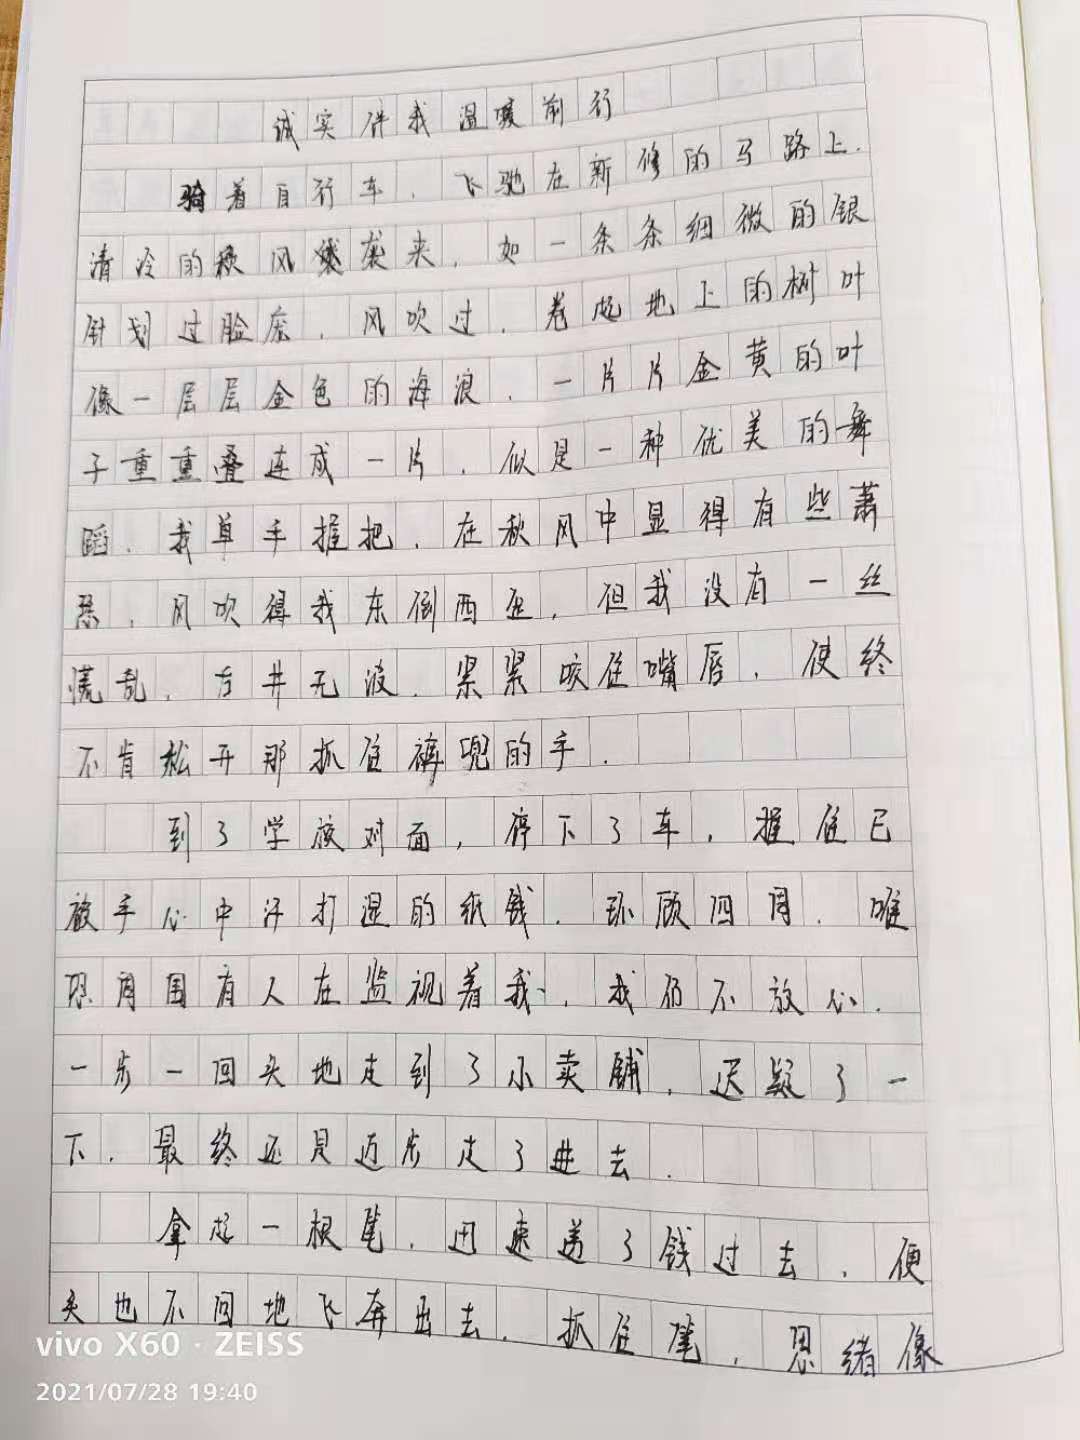 诚实伴我温暖前行
骑着自行车，飞驰在新修的马路上.
清冷的秋风袭来，如一条条细微的银
针划过脸庞，风吹过，卷起地上的树叶
像一层层金色的海浪，一片片金黄的叶
子重重叠连成一片，似是一种优美的舞
蹈，我单手握把，在秋风中显得有些萧
瑟，风吹得我东倒西歪，但我没有一丝
慌乱，古井无波，紧紧咬住嘴唇，使终
不肯松开那抓住裤兜的手.
到了学校对面，停下了车，握住已
被手心中汗打湿的纸钱，环顾四周，唯
恐周围有人在监视着我，我仍不放心，
一步一回头地走到了小卖铺，迟疑了一
下，最终还是迈步走了进去.
拿起一根笔，迅速递了钱过去，便
头也不回地飞奔出去，抓住笔，思绪像
vivo X60 · ZEISS
2021/07/28 19:40